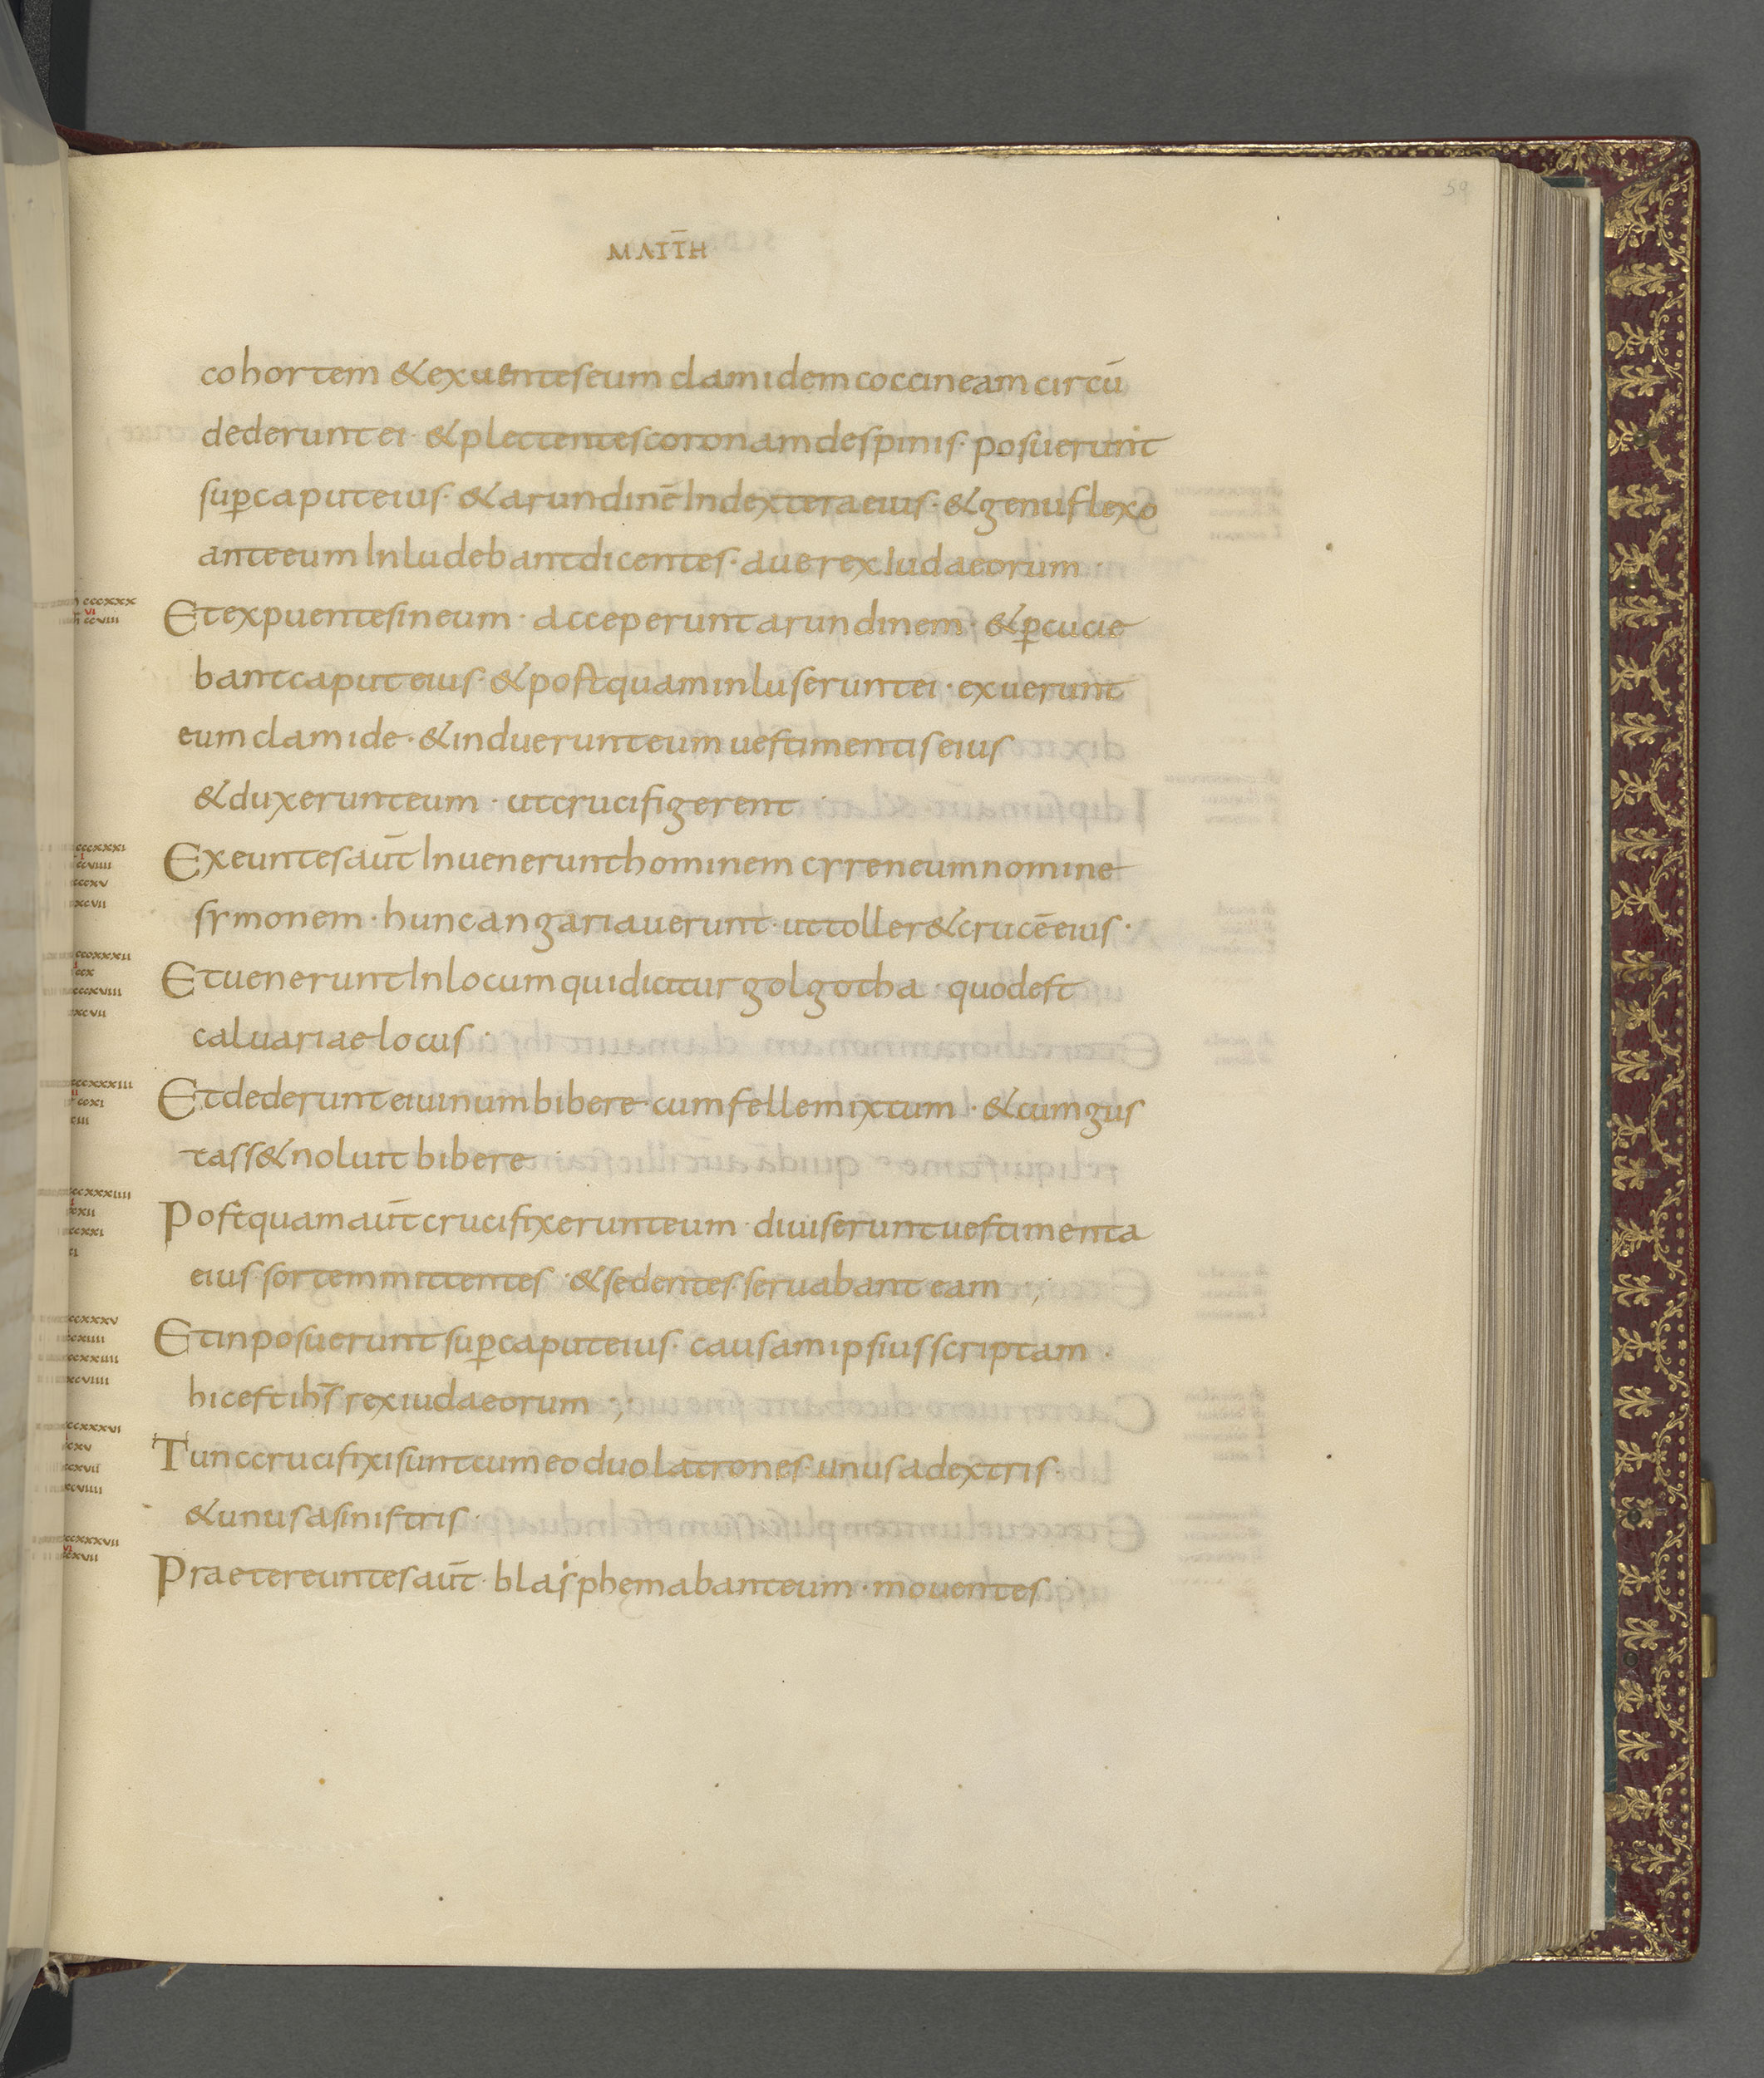 59
MATT̄H
cohortem & exuentes eum clamidem coccineam circū
dederunt ei · & plectentes coronam de spinis · posuerunt
sup̄ caput eius · & arundinē In dextera eius · & genu flexo
ante eum Inludebant dicentes · aue rex Iudaeorum ·
Et expuentes in eum · acceperunt arundinem · & p̄cucie
bant caput eius · & postquam inluserunt ei · exuerunt
eum clamide · & induerunt eum uestimentis eius
& duxerunt eum · ut crucifigerent
Exeuntes aūt Inuenerunt hominem cyreneum nomine
symonem · hunc angariauerunt · ut toller& crucē eius ·
Et uenerunt In locum qui dicitur golgotha · quod est
caluariae locus ·
Et dederunt ei uinum bibere cum felle mixtum · & cum gus
tass& noluit bibere
Postquam aūt crucifixerunt eum · diuiserunt uestimenta
eius sortem mittentes · & sedentes seruabant eam ;
Et inposuerunt sup̄ caput eius · causam ipsius scriptam ·
hic est ih̄s rex iudaeorum ;
Tunc crucifixi sunt cum eo duo latrones · unus a dextris ·
& unus a sinistris ·
Praetereuntes aūt · blasphemabant eum · mouentes